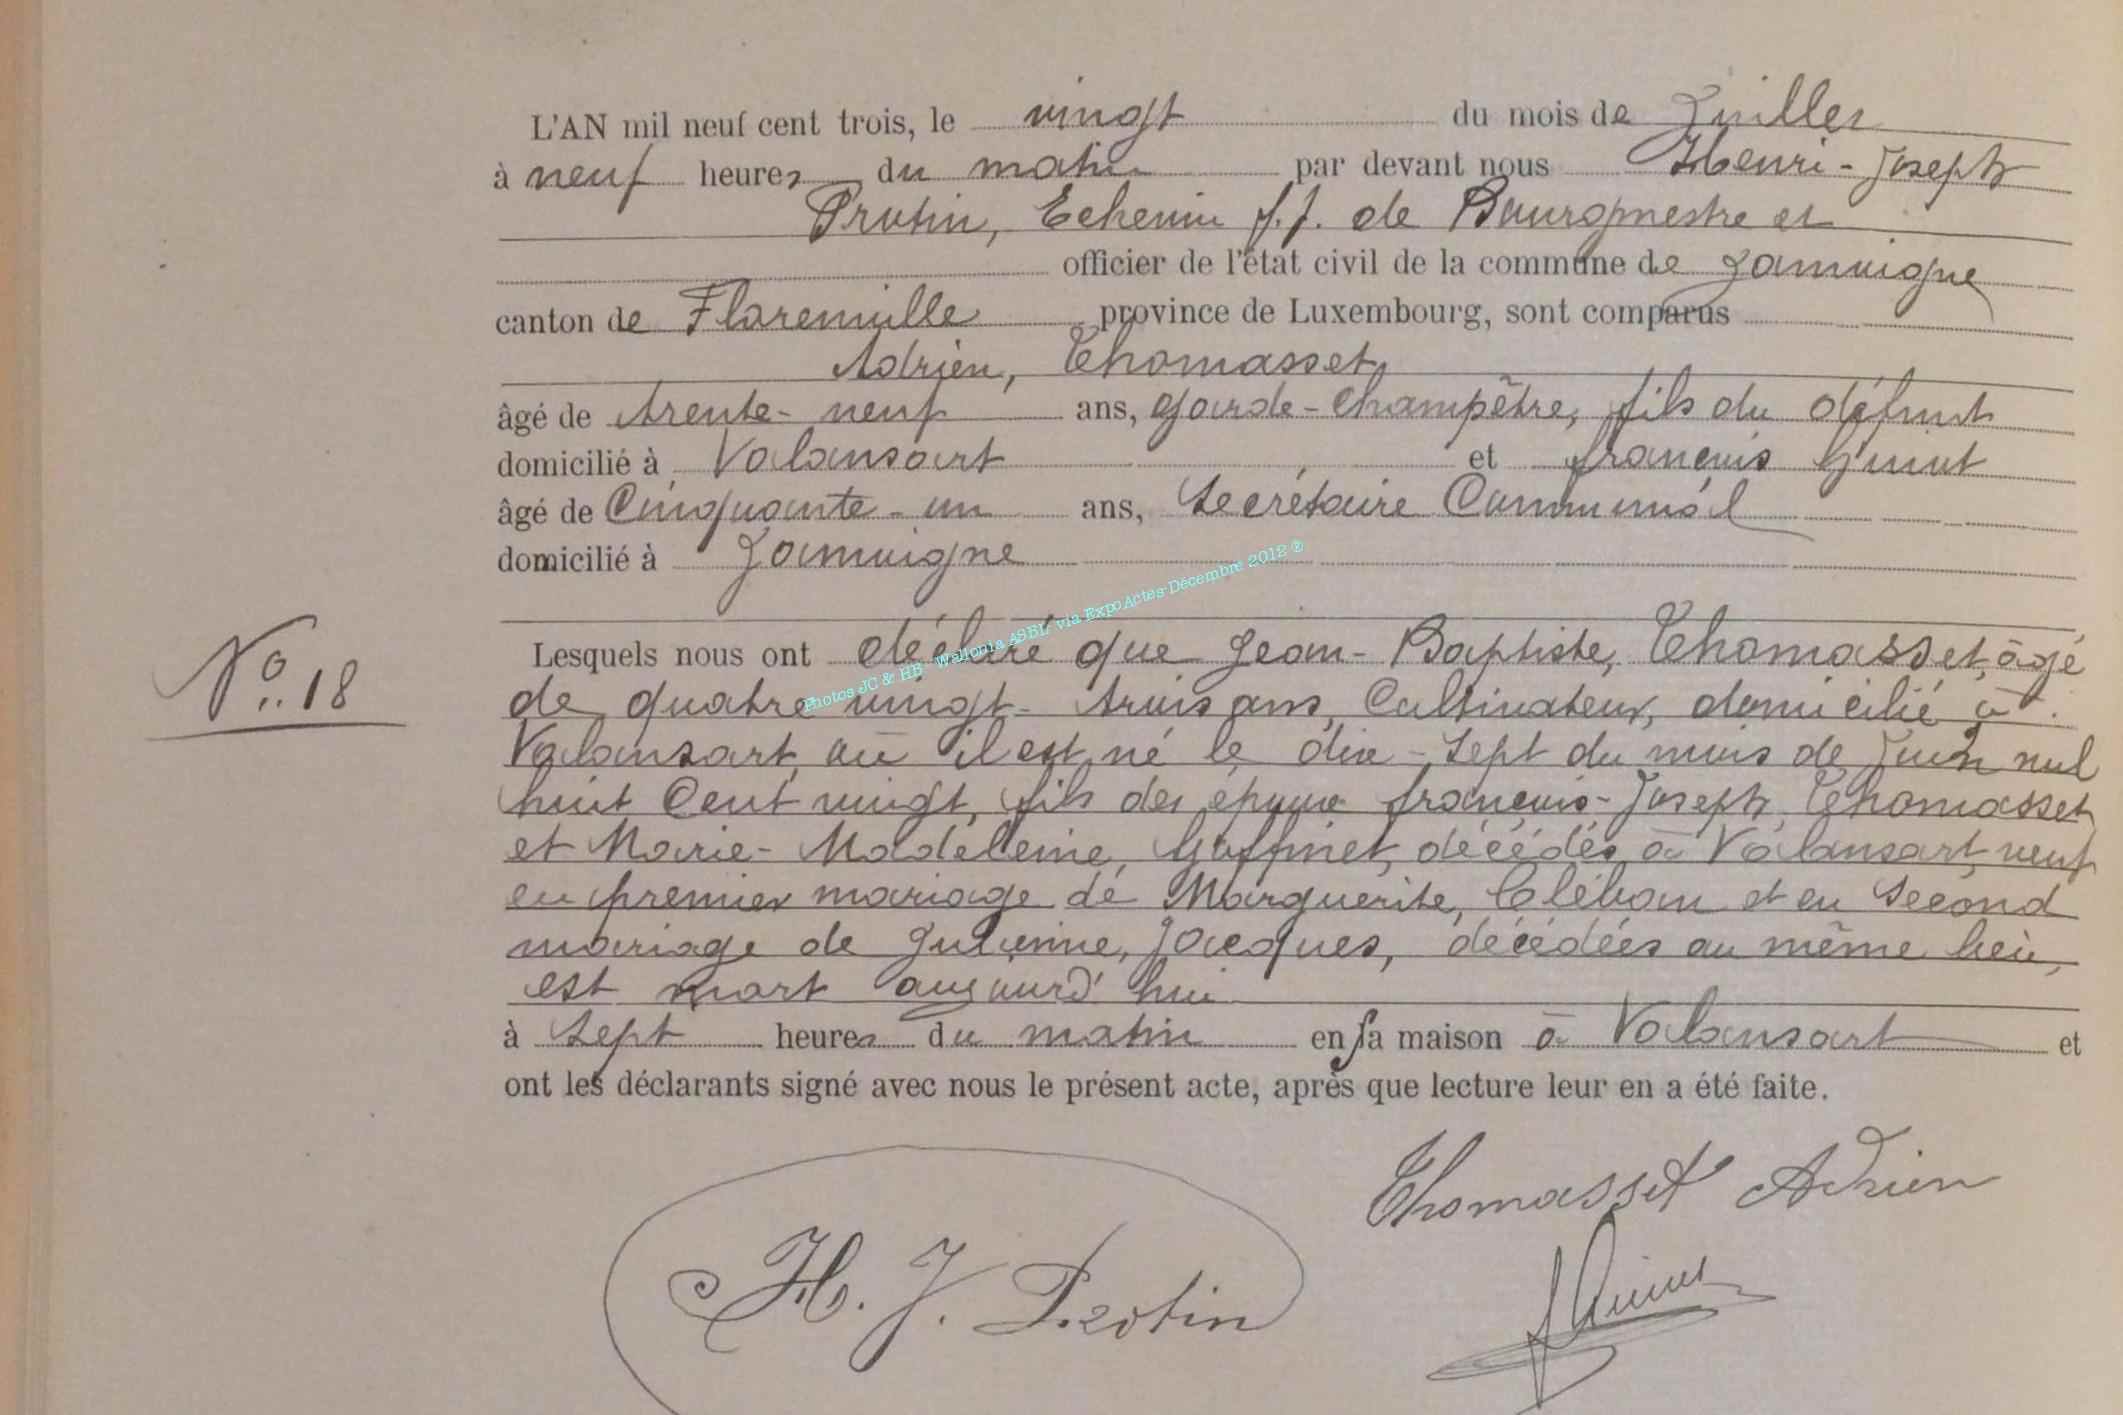 L'AN mil neuf cent trois, le vingt du mois de Juillet
à neuf heures du matin par devant nous Henri-Joseph
Protin, Echevin f.f. de Bourgmestre et
officier de l'état civil de la commune de Jamoigne
canton de Florenville province de Luxembourg, sont comparus
Adrien, Thomasset,
âgé de trente-neuf ans, garde-champêtre, fils du défunt
domicilié à Valansart et françois
âgé de Cinquante-un ans, Secrétaire Communal
domicilié à Jamoigne
N° 18
Lesquels nous ont déclaré que Jean-Baptiste, Thomasset, âgé
de quatre vingt-trois ans, Cultivateur, domicilié à
Valansart, où il est né le dix-sept du mois de Juin mil
huit Cent vingt, fils des époux françois-Joseph, Thomasset
et Marie-Madeleine, Goffinet, décédés à Valansart, veuf
en premier mariage de Marguerite, et en Second
mariage de Julienne, Jacques, décédées au même lieu,
est mort aujourd'hui
à sept heures du matin en sa maison à Valansart et
ont les déclarants signé avec nous le présent acte, après que lecture leur en a été faite.
Thomasset Adrien
H. J. Protin
Photos JC & HB Wallonia ASBL via ExpoActes-Décembre 2012 ®